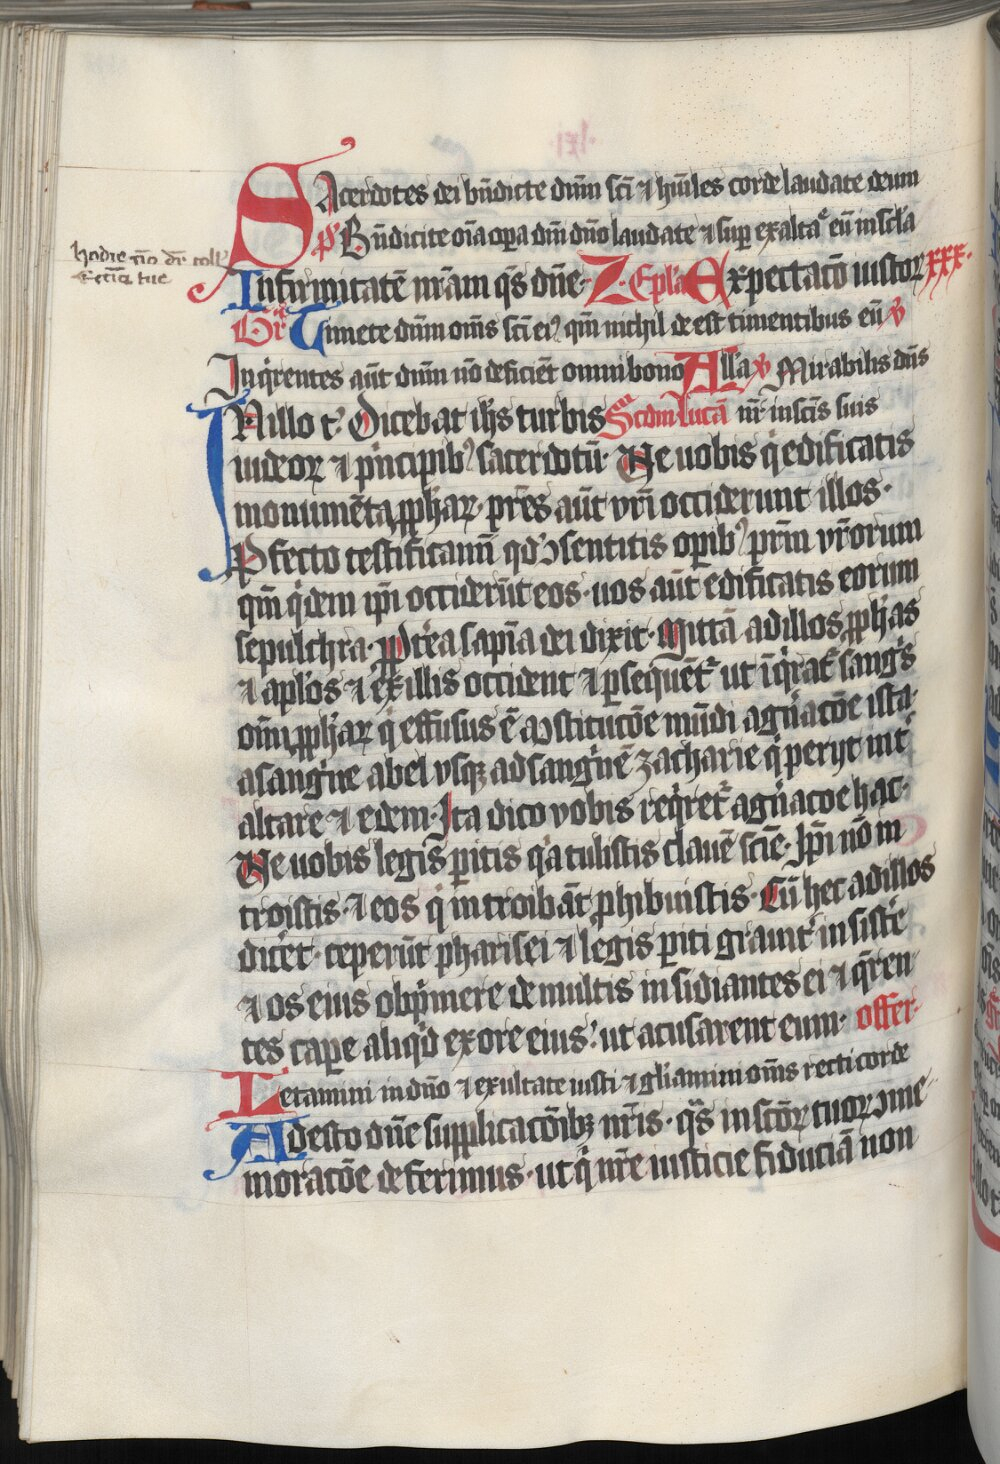 Sacerdotes dei bn̄dicte dn̄m sc̄i ⁊ hūiles corde laudate deum
ps̄ Bn̄dicite oīa opa dn̄i dn̄o laudate ⁊ sup exaltate eū in sc̄la
hodie nō dr̄ coll'
Eccīā tue
Infirmitatē nr̄am qs̄ dn̄e· Z· Epl'a Expectatō iustoꝝ xxx·
Gr̄ Timete dn̄m om̄s sc̄i eiꝰ qm̄ nichil deest timentibus eū ꝟ
Inq̇rentes aūt dn̄m nō deficiēt omni bono All'a ꝟ Mirabilis dn̄s
IN illo t̄ Dicebat ih̄s turbis Scdm lucā nr̄ in scīs suis
iudeoꝝ ⁊ ṗncipibꝰ sacerdotū· Ve uobis q̇ edificatis
monumēta ꝓphaꝝ· pr̄es aūt vr̄i occiderunt illos·
Pfecto testificamī qd' ↄsentitis opibꝰ pr̄m vr̄orum
qm̄ q̇dem ip̄i occiderūt eos· uos aūt edificatis eorum
sepulchra· ꝓpterea sapīa dei dixit· Mittā ad illos ꝓphas
⁊ apl'os ⁊ ex illis occident ⁊ ꝑsequēt' ut īq̇rat' sang's
om̄ ꝓphaꝝ q̇ effusus ē a ↄstitucōe mūdi a gn̄acōe ista·
a sangne abel vsqꝫ ad sangnē zacharie q̇ perijt int'
altare ⁊ edem· Ita dico vobis req̇ret' a gn̄acōe hac·
Ve uobis legis pitis q̇a tulistis clauē scīe· Ip̄i nō in
troistis· ⁊ eos q̇ introibāt ꝓhibuistis· Cū hec ad illos
dic̄et· ceperūt pharisei ⁊ legis piti grauit' insist'e
⁊ os eius obp̄mere de multis insidiantes ei ⁊ q̄ren
tes cape aliq̇d ex ore eius· ut acusarent eum· offer·
Letamini in dn̄o ⁊ exultate iusti ⁊ gl'iamini om̄s recti corde
Adesto dn̄e supplicacōibꝫ nr̄is· qs̄ in sc̄oꝝ tuoꝝ ↄme
moracōe deferimus· ut q̇ nr̄e iusticie fiduciā non